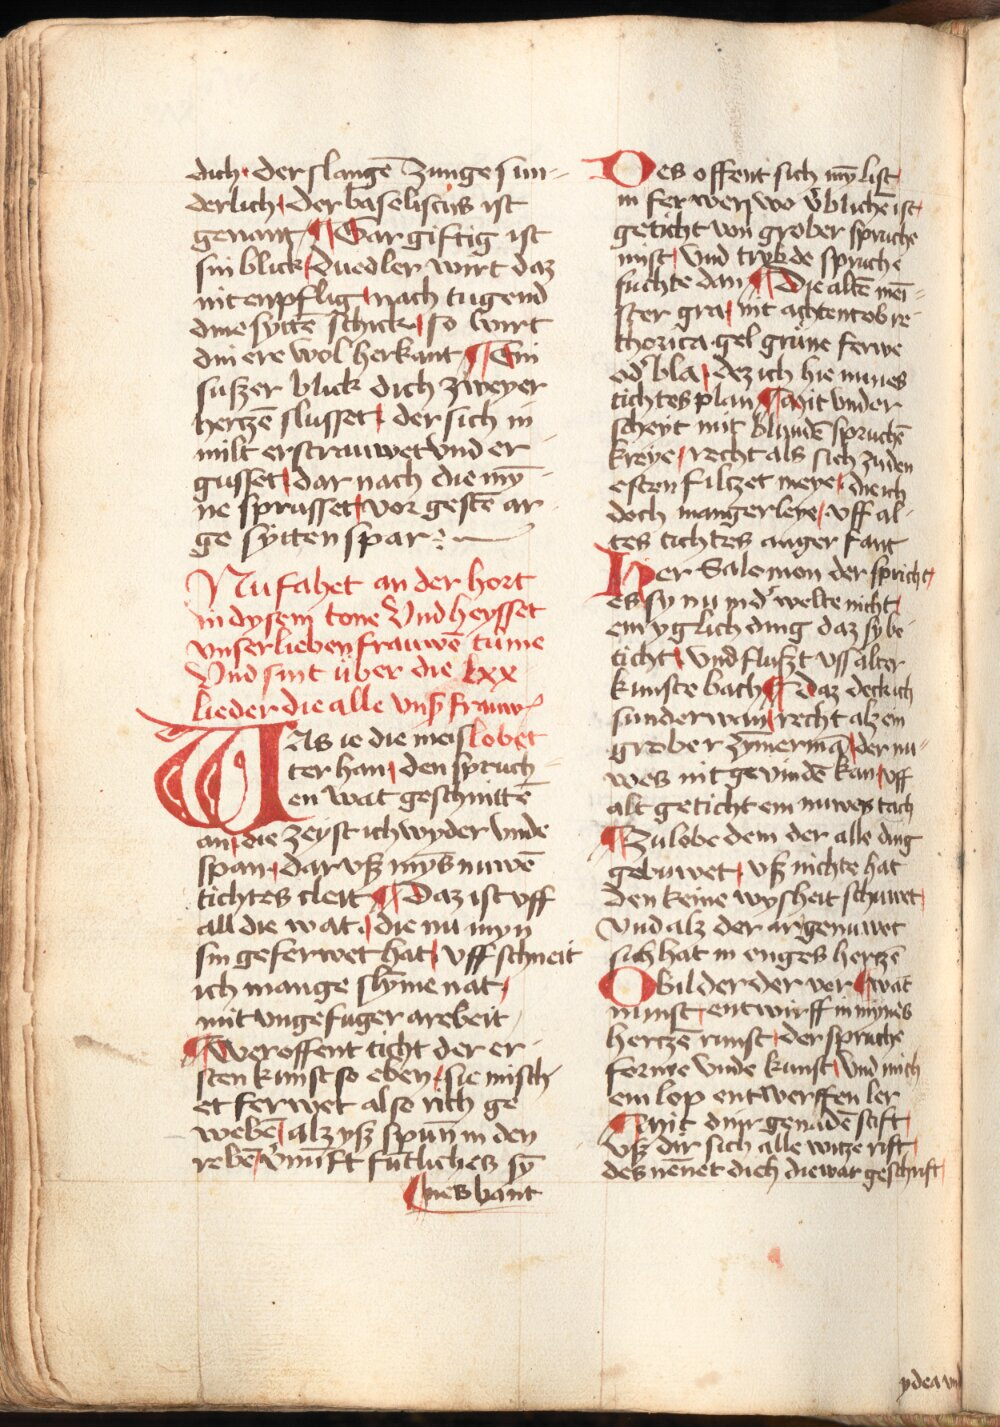 dich · der slangē zunge sun-
derlich, der baseliscus ist
genant, ¶ Gar giftig ist
sin blick, du edler wirt daz
nit enpflig, nach tugend
dine syttē schick, so wirt
din ere wol herkant, ¶ Ein
suszer blick dich zweyer
hertzē slusset, der sich in
milt erstrauwet vnd er-
gusset, dar nach die my-
ne sprusset, vor gestē ar-
ge sytten spar
Nu fahet an der hort
in dysem tone Vnd heysset
vnser lieben frauwē tume
Vnd sint über die lxx
lieder die alle vnsz frauw
Was ie die meis lobet
ter han, den spruch-
en wat geschnittē
an, die zeyst ich wyder vnde
span, dar vsz myns nuwē
tichtes cleit, ¶ Daz ist vff
all die wat, die nu myn
sin geferwet hat, vff schneit
ich mange slyme nat,
mit vngefuger arebeit
¶ Wer offent ticht der er-
sten kunst so eben, sie misch-
et ferwet also rich ge
webē, alz ysz spūn in den
rebē, v̄nūft fūtliches sy
¶ nes bant
Des offent sich my list
in ferwen wo v̓blichē ist,
geticht von grober spruche
mist, vnd trybde spruche
fuchte dan, ¶ Die altē mei-
ster gra, nit achtent ob re-
thorica gel grune ferwe
od̓ bla, dez ich hie nuwes
tichtes plan, ¶ mit vnder
scheyt mit blundē spruchē
kreye, recht als sich zu den
esten filtzet meye, die ich
doch manger leye, vff al-
tes tichtes anger fant
Her Salemon der spricht,
es sy nu in d̓ welte nicht,
ein yglich ding daz sy be
ticht, vnd fluszt vss alter
kunste bach, ¶ Daz deck ich
sunder wan, recht alz ein
grober zymermā, der nu-
wes nit gevindē kan, vff
alt geticht ein nuwes tach
¶ Zu lobe dem der alle ding
gebuwet, vsz nichte hat
den keine wysheit schuwet,
vnd alz der argenuwet
sich hat in enges hertzē
O bilder der ver ¶ wat
nunst, entwirff in mynes
hertzē runst, der spruche
forme vnde kunst, vnd mich
ein lop entwerffen ler
¶ mit diner genadē stift,
vsz dir sich alle witze rift,
des nēnet dich die war geschrift,
ydea vn